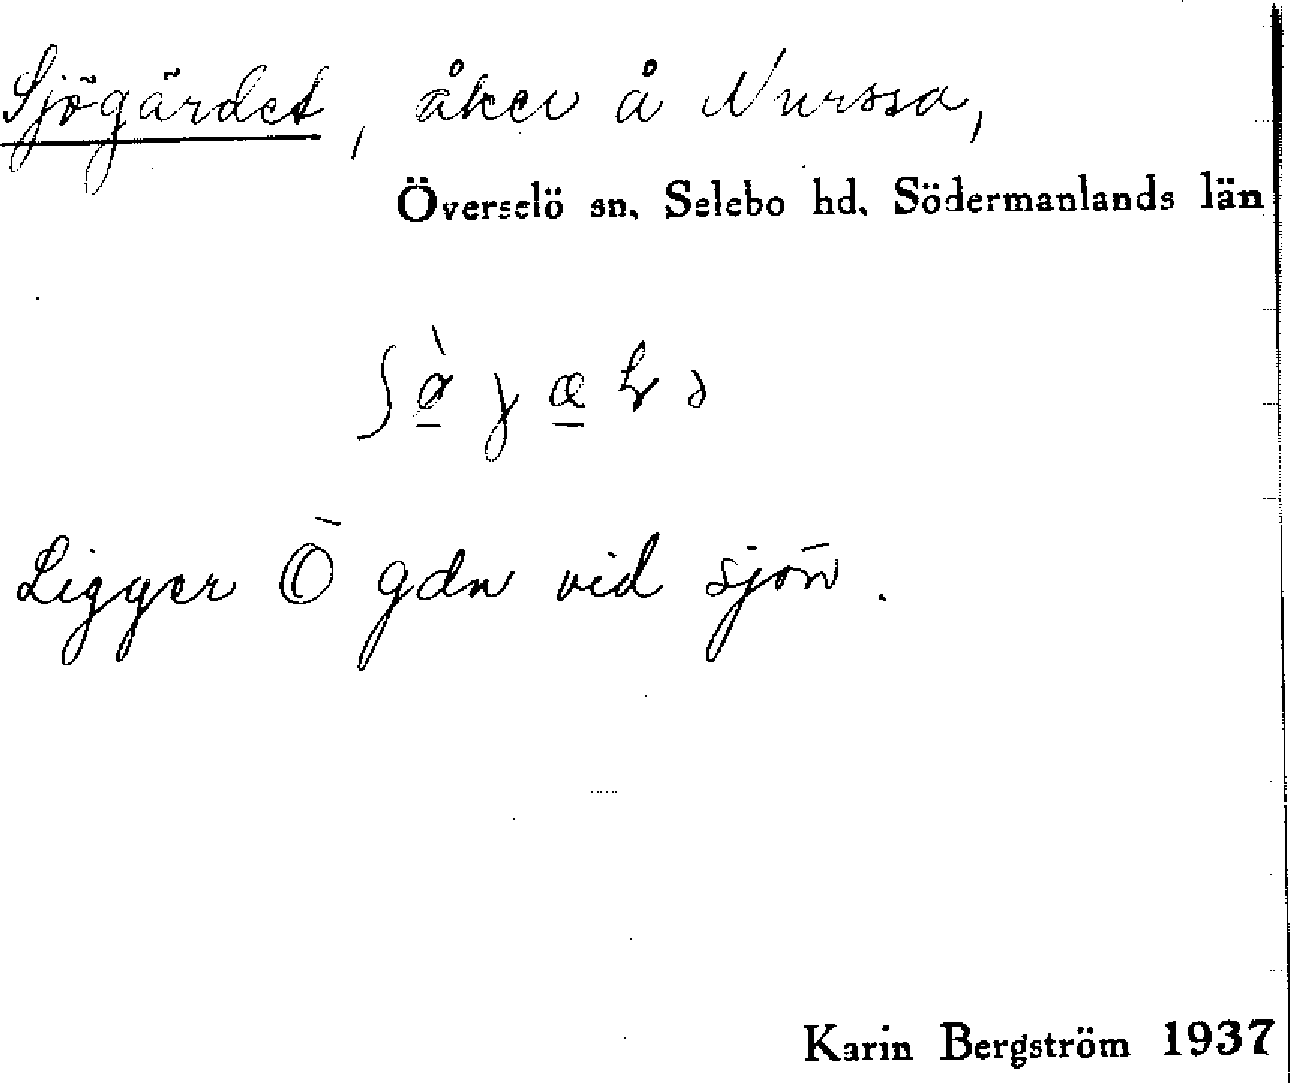 Sjögärdet, åker å Nurssa,
Överselö sn. Selebo hd. Södermanlands län
Ligger Ö gdn vid sjön.
Karin Bergström 1937